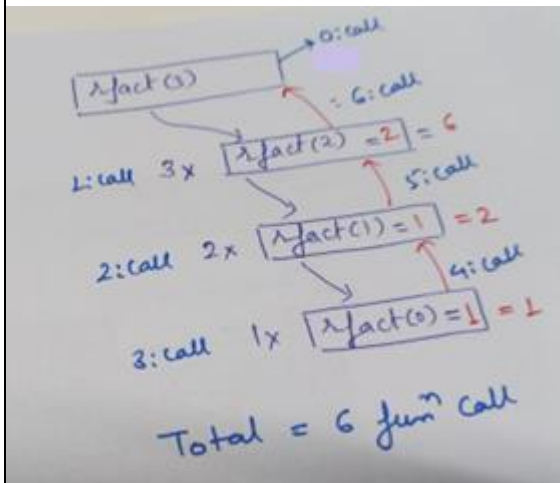 0:call
rfact(3)
= 6:call
1:call 3x rfact(2) = 2 = 6
5:call
2:call 2x rfact(1) = 1 = 2
4:call
3:call 1x rfact(0) = 1 = 1
Total = 6 funⁿ call